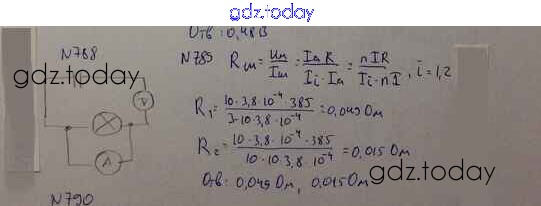 gdz.today
Отв: 0,48В
N788
N789 Rш = Uш/Iш = IₐR/(Iᵢ-Iₐ) = nIR/(Iᵢ-nI), i=1,2
gdz.today
V
R₁ = 10·3,8·10⁻⁴·385/(3-10·3,8·10⁻⁴) = 0,049Ом
A
R₂ = 10·3,8·10⁻⁴·385/(10-10·3,8·10⁻⁴) = 0,015Ом
Отв: 0,049Ом, 0,015Ом
gdz.today
N790